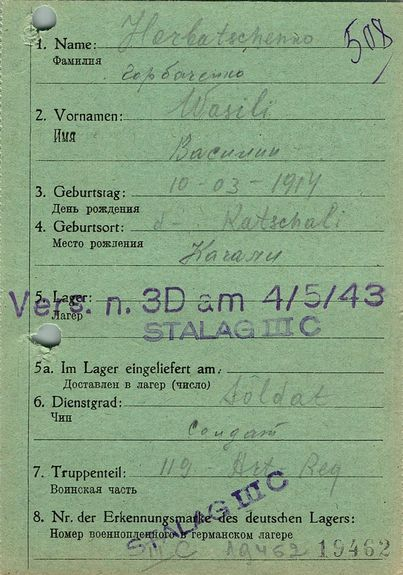 508
1. Name: Horbatschenko
Фамилия
Горбаченко
2. Vornamen: Wasili
Имя
Василий
3. Geburtstag: 10-03-1914
День рождения
4. Geburtsort: d- Katschali
Место рождения
Качали
5. Lager:
Лагер
Vers. n. 3D am 4/5/43
STALAG III C
5a. Im Lager eingeliefert am:
Доставлен в лагер (число)
6. Dienstgrad: Soldat
Чин
Солдат
7. Truppenteil: 119 Art Reg
Воинская часть
STALAG III C
8. Nr. der Erkennungsmarke des deutschen Lagers:
Номер военнопленного в германском лагере
III C 19462 19462